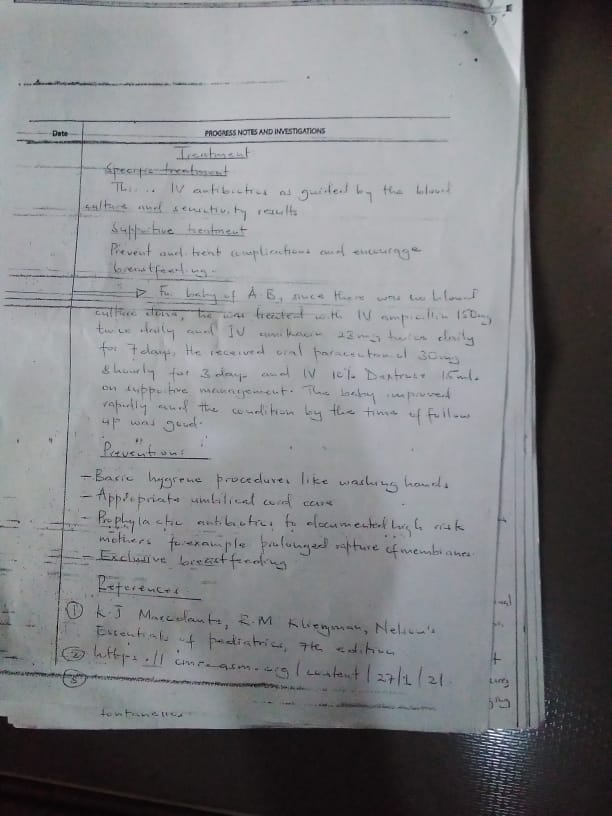 Date PROGRESS NOTES AND INVESTIGATIONS
Treatment
Specific treatment
IV antibiotics as guided by the blood
culture and sensitivity results
Supportive treatment
Prevent and treat complications and encourage
breastfeeding.
For baby of A.B, since there was no blood
culture done, he was treated with IV ampicillin 150mg
twice daily and IV amikacin 23mg twice daily
for 7days, He received oral paracetamol 30mg
8hourly for 3days and IV 10% Dextrose 15mls
on supportive management. The baby improved
rapidly and the condition by the time of follow
up was good.
Prevention:
- Basic hygiene procedures like washing hands
- Appropriate umbilical cord care
- Prophylactic antibiotics to documented high risk
mothers forexample prolonged rapture of membranes.
- Exclusive breastfeeding
References
① K.J Marcdante, R.M Kliegman, Nelson's
Essentials of pediatrics, 7th edition
② https://cmr.asm.org/content/27/1/21.
③
fontanelles